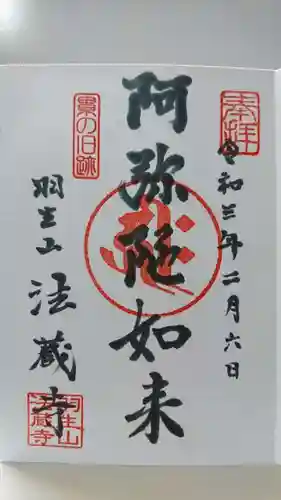 奉拝
令和三年二月六日
阿弥陀如来
累の旧跡
羽生山
法蔵寺
羽生山
法蔵寺